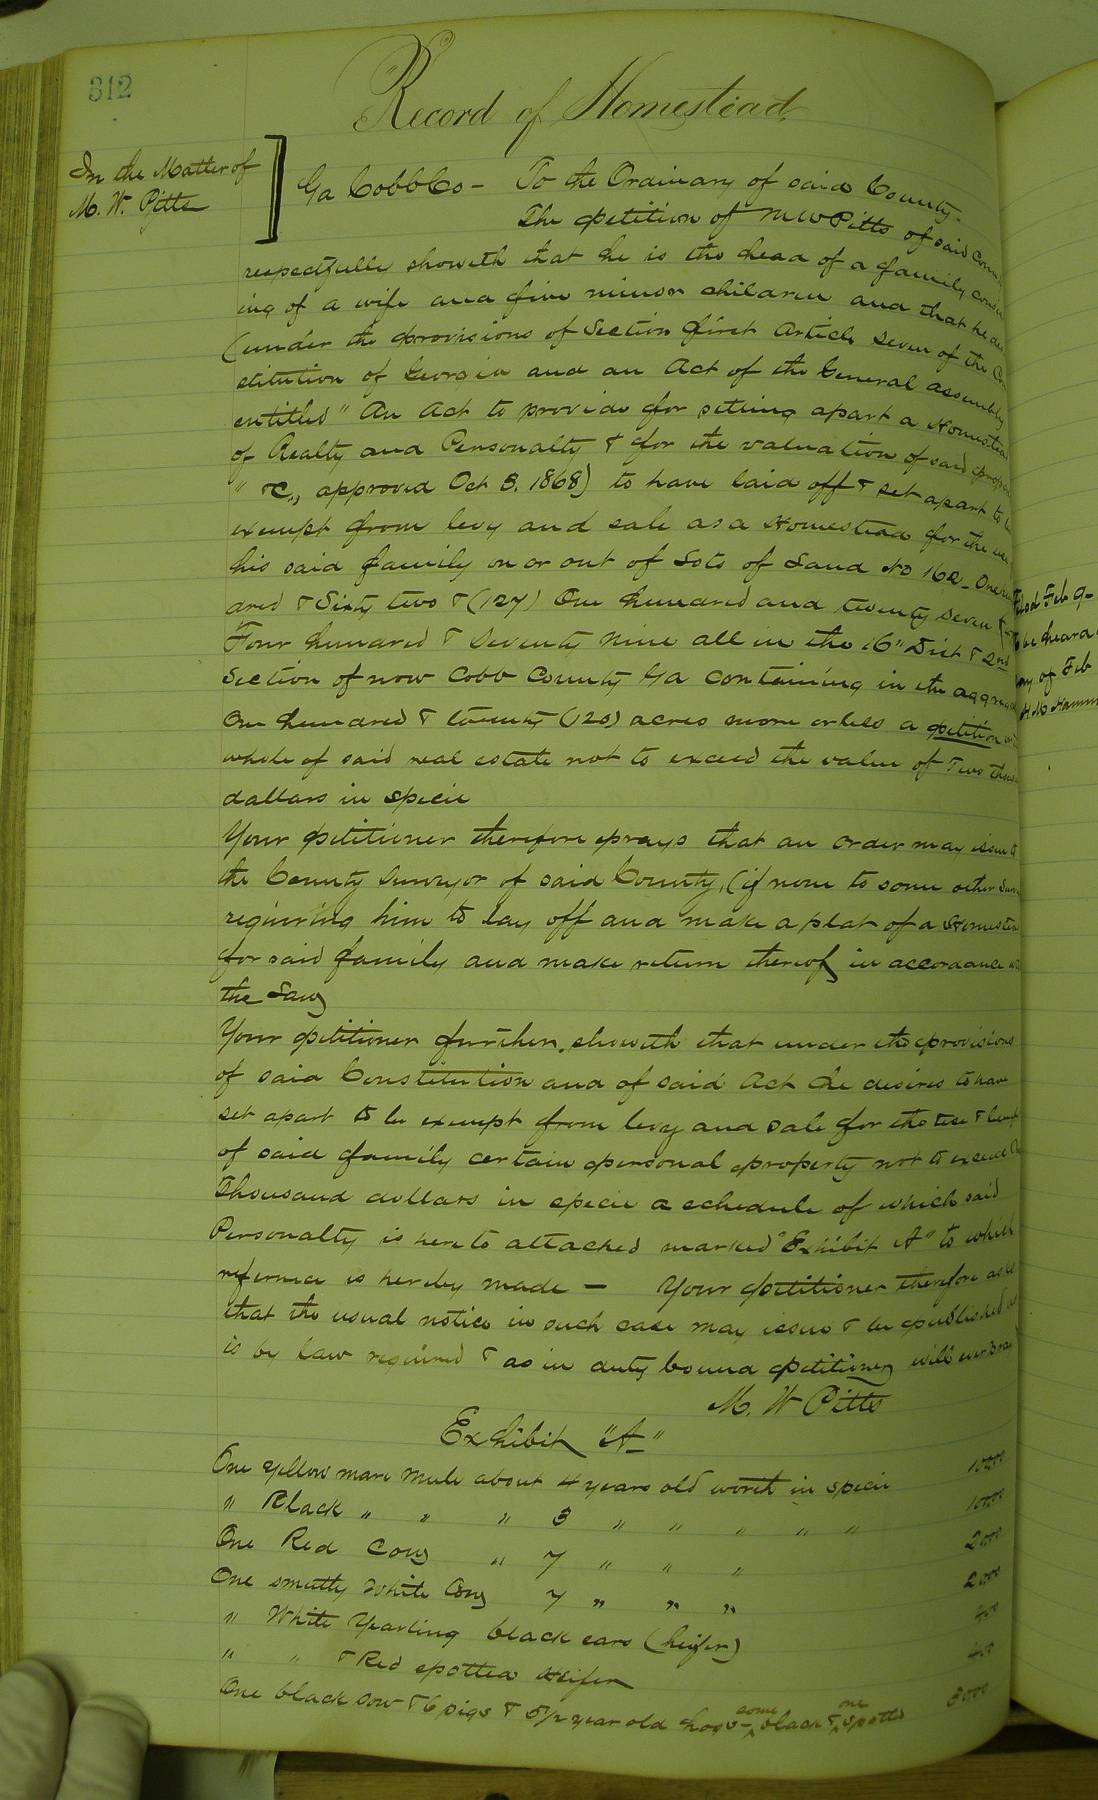 312
Record of Homestead
In the Matter of
M. W. Pitts
Ga Cobb Co - To the Ordinary of said County.
The petition of M W Pitts of said Coun
respectfully showeth that he is the head of a family consis
ing of a wife and five minor children and that he des
(under the provisions of Section first Article Seven of the Con
stitution of Georgia and an Act of the General assembly
entitled " An Act to provide for setting apart a Homestead
of Realty and Personalty & for the valuation of said prop
" &c., approved Oct 3. 1868) to have laid off & set apart to be
exempt from levy and sale as a Homestead for the use
his said family on or out of Lots of Land No 162 - One hun
dred & Sixty two & (127) One hundred and twenty seven &
Four hundred & Seventy nine all in the 16" Dist & 2nd
Section of now Cobb County Ga containing in the aggrega
One hundred & twenty (120) acres more or less a petition or
whole of said real estate not to exceed the value of Two thous
dollars in specie
Your petitioner therefore prays that an order may issue to
the County Surveyor of said County, (if none to some other Sur
requiring him to lay off and make a plat of a Homestea
for said family and make return thereof in accordance wi
the Law
Your petitioner further showeth that under the provisions
of said Constitution and of said Act he desires to have
set apart to be exempt from levy and sale for the use & ben
of said family certain personal property not to exceed On
Thousand dollars in specie a schedule of which said
Personalty is hereto attached marked "Exhibit A" to which
refernce is hereby made — Your petitioner therefore asks
that the usual notice in such case may issue & be published as
is by law required & as in duty bound petitioner will ever pray
M. W Pitts
Exhibit "A"
One yellow mare mule about 4 years old worth in specie 100 00
" Black " " " 3 " " " " " 100 00
One Red Cow " 7 " " " 20 00
One smutty White Cow 7 " " " 20 00
" White Yearling black ears (heifer) 4 00
" " & Red spotted Heifer 4 00
One black sow & 6 pigs & 5 1/2 year old hogs - some black & one spotted 30 00
Filed Feb 9
be heard
ay of Feb
H. M Hamm